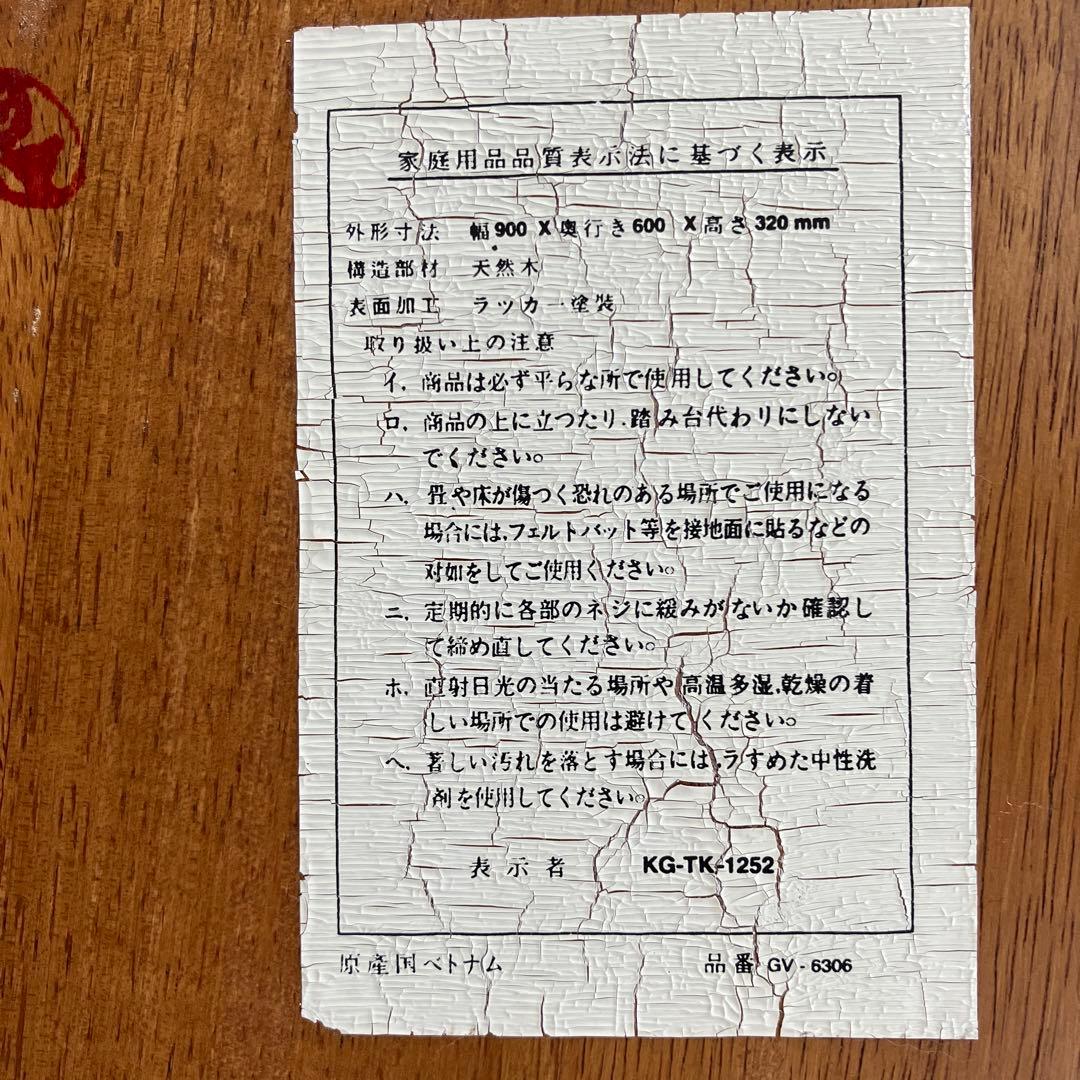 家庭用品品質表示法に基づく表示
外形寸法 幅900 X奥行き600 X高さ320mm
構造部材 天然木
表面加工 ラッカー塗装
取り扱い上の注意
イ. 商品は必ず平らな所で使用してください。
ロ. 商品の上に立つたり.踏み台代わりにしない
でください。
ハ. 畳や床が傷つく恐れのある場所でご使用になる
場合には,フェルトバット等を接地面に貼るなどの
対如をしてご使用ください。
ニ. 定期的に各部のネジに緩みがないか確認し
て締め直してください。
ホ. 直射日光の当たる場所や高温多湿,乾燥の着
しい場所での使用は避けてください。
ヘ. 著しい汚れを落とす場合には,ラすめた中性洗
剤を使用してください。
表示者 KG-TK-1252
原産国ベトナム 品番 GV-6306